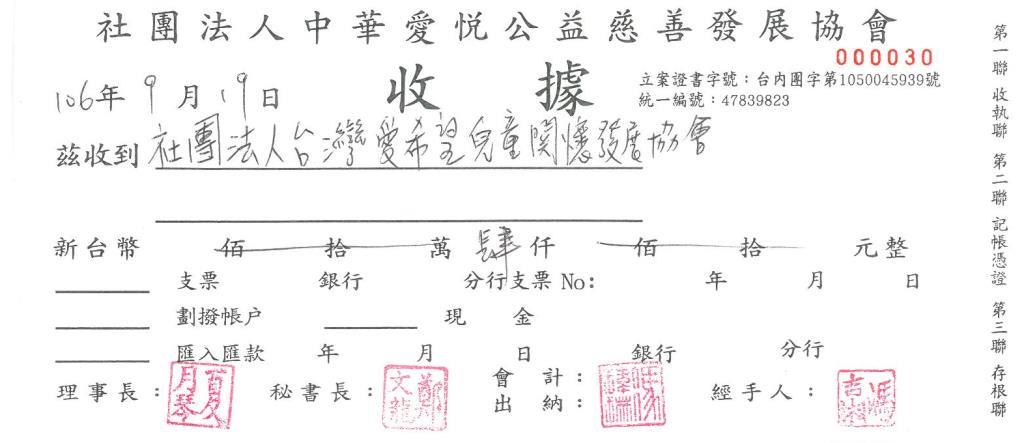 社團法人中華愛悅公益慈善發展協會
000030
106年9月19日
收據
立案證書字號：台內團字第1050045939號
統一編號：47839823
茲收到 社團法人台灣愛希望兒童関懷發展協會
新台幣 佰 拾 萬 肆仟 佰 拾 元整
支票 銀行 分行支票No: 年 月 日
劃撥帳户 現 金
匯入匯款 年 月 日 銀行 分行
理事長： 月琴
秘書長： 鄭文龍
會 計：
出 納：
經手人：
第一聯 收執聯 第二聯 記帳憑證 第三聯 存根聯